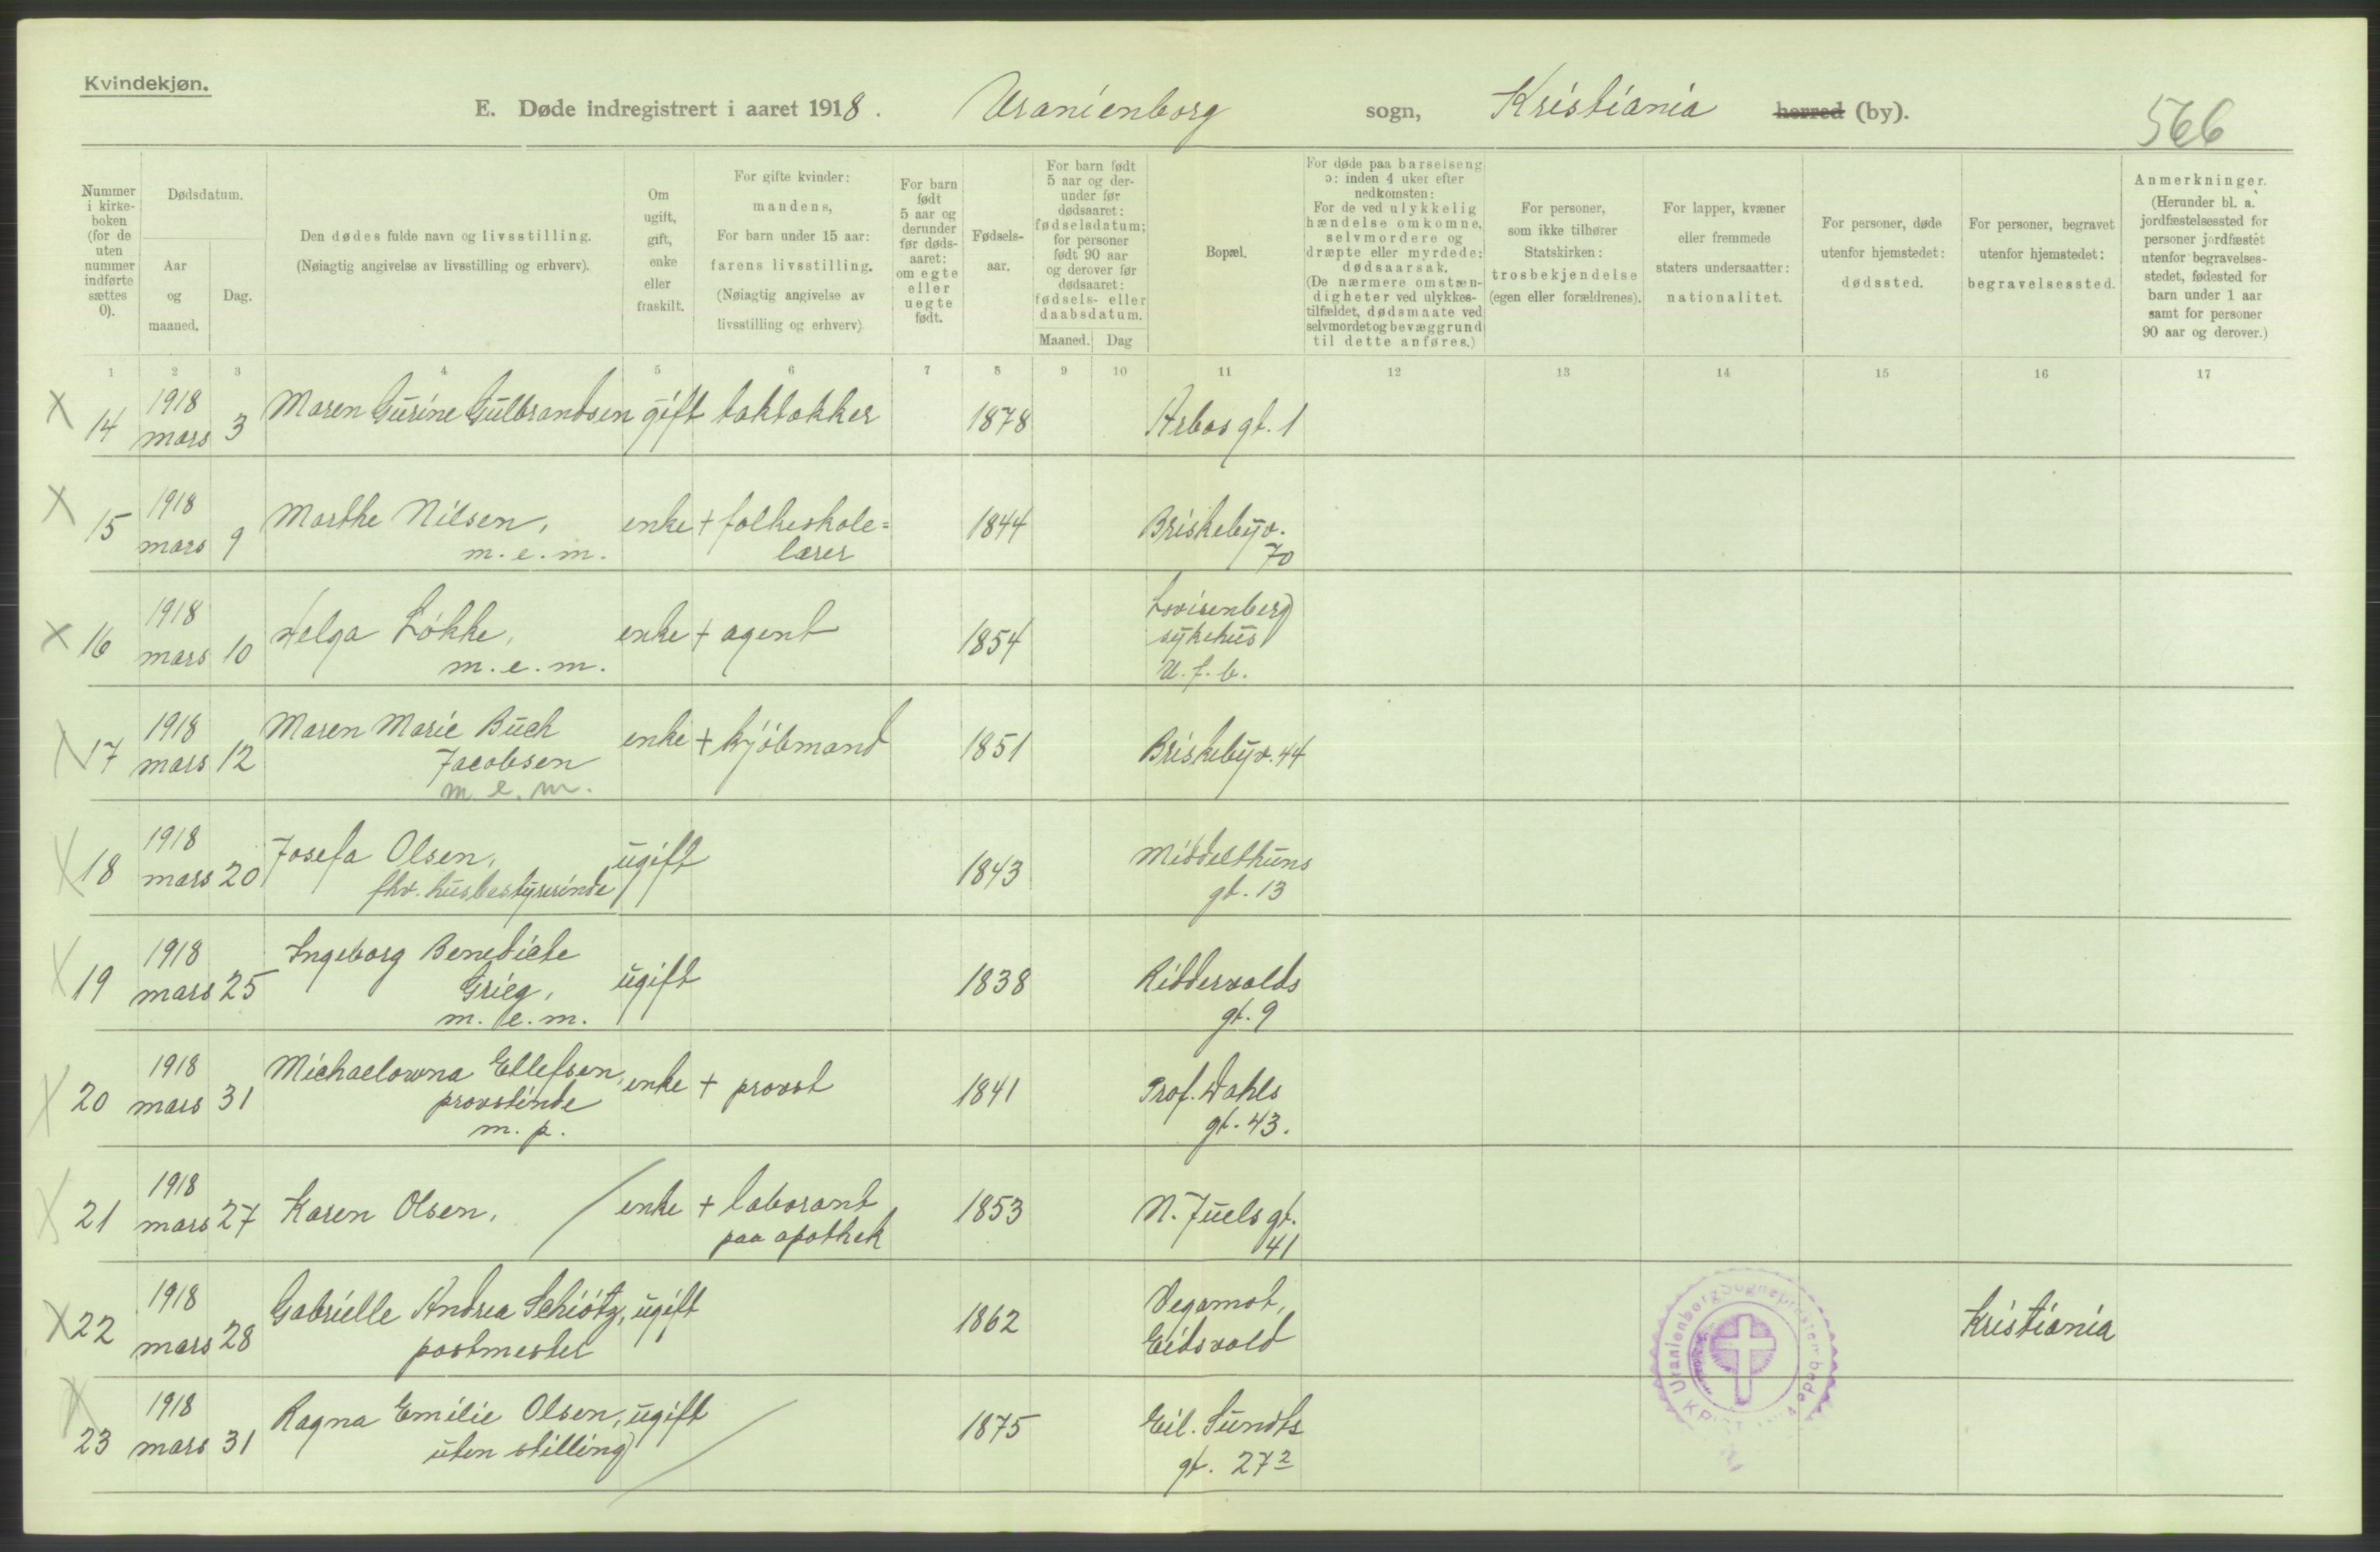 Kvindekjøn.
E. Døde indregistrert i aaret 1918. Uranienborg sogn, Kristiania herred (by).
566
Nummer i kirke-boken (for de uten nummer indførte sættes 0).
Dødsdatum.
Aar og maaned.
Dag.
Den dødes fulde navn og livsstilling.
(Nøiagtig angivelse av livsstilling og erhverv).
Om ugift, gift, enke eller fraskilt.
For gifte kvinder: mandens,
For barn under 15 aar: farens livsstilling.
(Nøiagtig angivelse av livsstilling og erhverv)
For barn født 5 aar og derunder før døds-aaret: om egte eller uegte født.
Fødsels-aar.
For barn født 5 aar og der-under før dødsaaret: fødselsdatum; for personer født 90 aar og derover før dødsaaret: fødsels- eller daabsdatum.
Maaned. Dag
Bopæl.
For døde paa barselseng ɔ: inden 4 uker efter nedkomsten:
For de ved ulykkelig hændelse omkomne, selvmordere og dræpte eller myrdede: dødsaarsak.
(De nærmere omstæn-digheter ved ulykkes-tilfældet, dødsmaate ved selvmordet og bevæggrund til dette anføres.)
For personer, som ikke tilhører Statskirken: trosbekjendelse (egen eller forældrenes).
For lapper, kvæner eller fremmede staters undersaatter: nationalitet.
For personer, døde utenfor hjemstedet: dødssted.
For personer, begravet utenfor hjemstedet: begravelsessted.
Anmerkninger.
(Herunder bl. a. jordfæstelsessted for personer jordfæstet utenfor begravelses-stedet, fødested for barn under 1 aar samt for personer 90 aar og derover.)
1 2 3 4 5 6 7 8 9 10 11 12 13 14 15 16 17
X 14 1918 mars 3 Maren Gurine Gulbrandsen gift taktækker 1878 Arbos gt. 1
X 15 1918 mars 9 Marthe Nilsen, enke + folkeskole= 1844 Briskebyv.
m.e.m. lærer 70
X 16 1918 mars 10 Helga Løkke, enke + agent 1854 Lovisenberg
m.e.m. sykehus
U. f. b.
X 17 1918 mars 12 Maren Marie Buch enke + kjøbmand 1851 Briskebyv. 44
Jacobsen
m e. m.
X 18 1918 mars 20 Josefa Olsen, ugift 1843 Middelthuns
fhv. husbestyrerinde gt. 13
X 19 1918 mars 25 Ingeborg Benedicte ugift 1838 Riddervolds
Grieg, gt. 9
m. e. m.
X 20 1918 mars 31 Michaelowna Ellefsen, enke + provst 1841 Prof. Dahls
provstinde gt. 43.
m. p.
X 21 1918 mars 27 Karen Olsen, enke + laborant 1853 N. Juels gt.
paa apothek 41
X 22 1918 mars 28 Gabrielle Andrea Schiøtz, ugift 1862 Vegamot, Kristiania
postmester Eidsvold
X 23 1918 mars 31 Ragna Emilie Olsen, ugift 1875 Eil. Sundts
uten stilling gt. 27²
Uranienborg Sogneprestembede